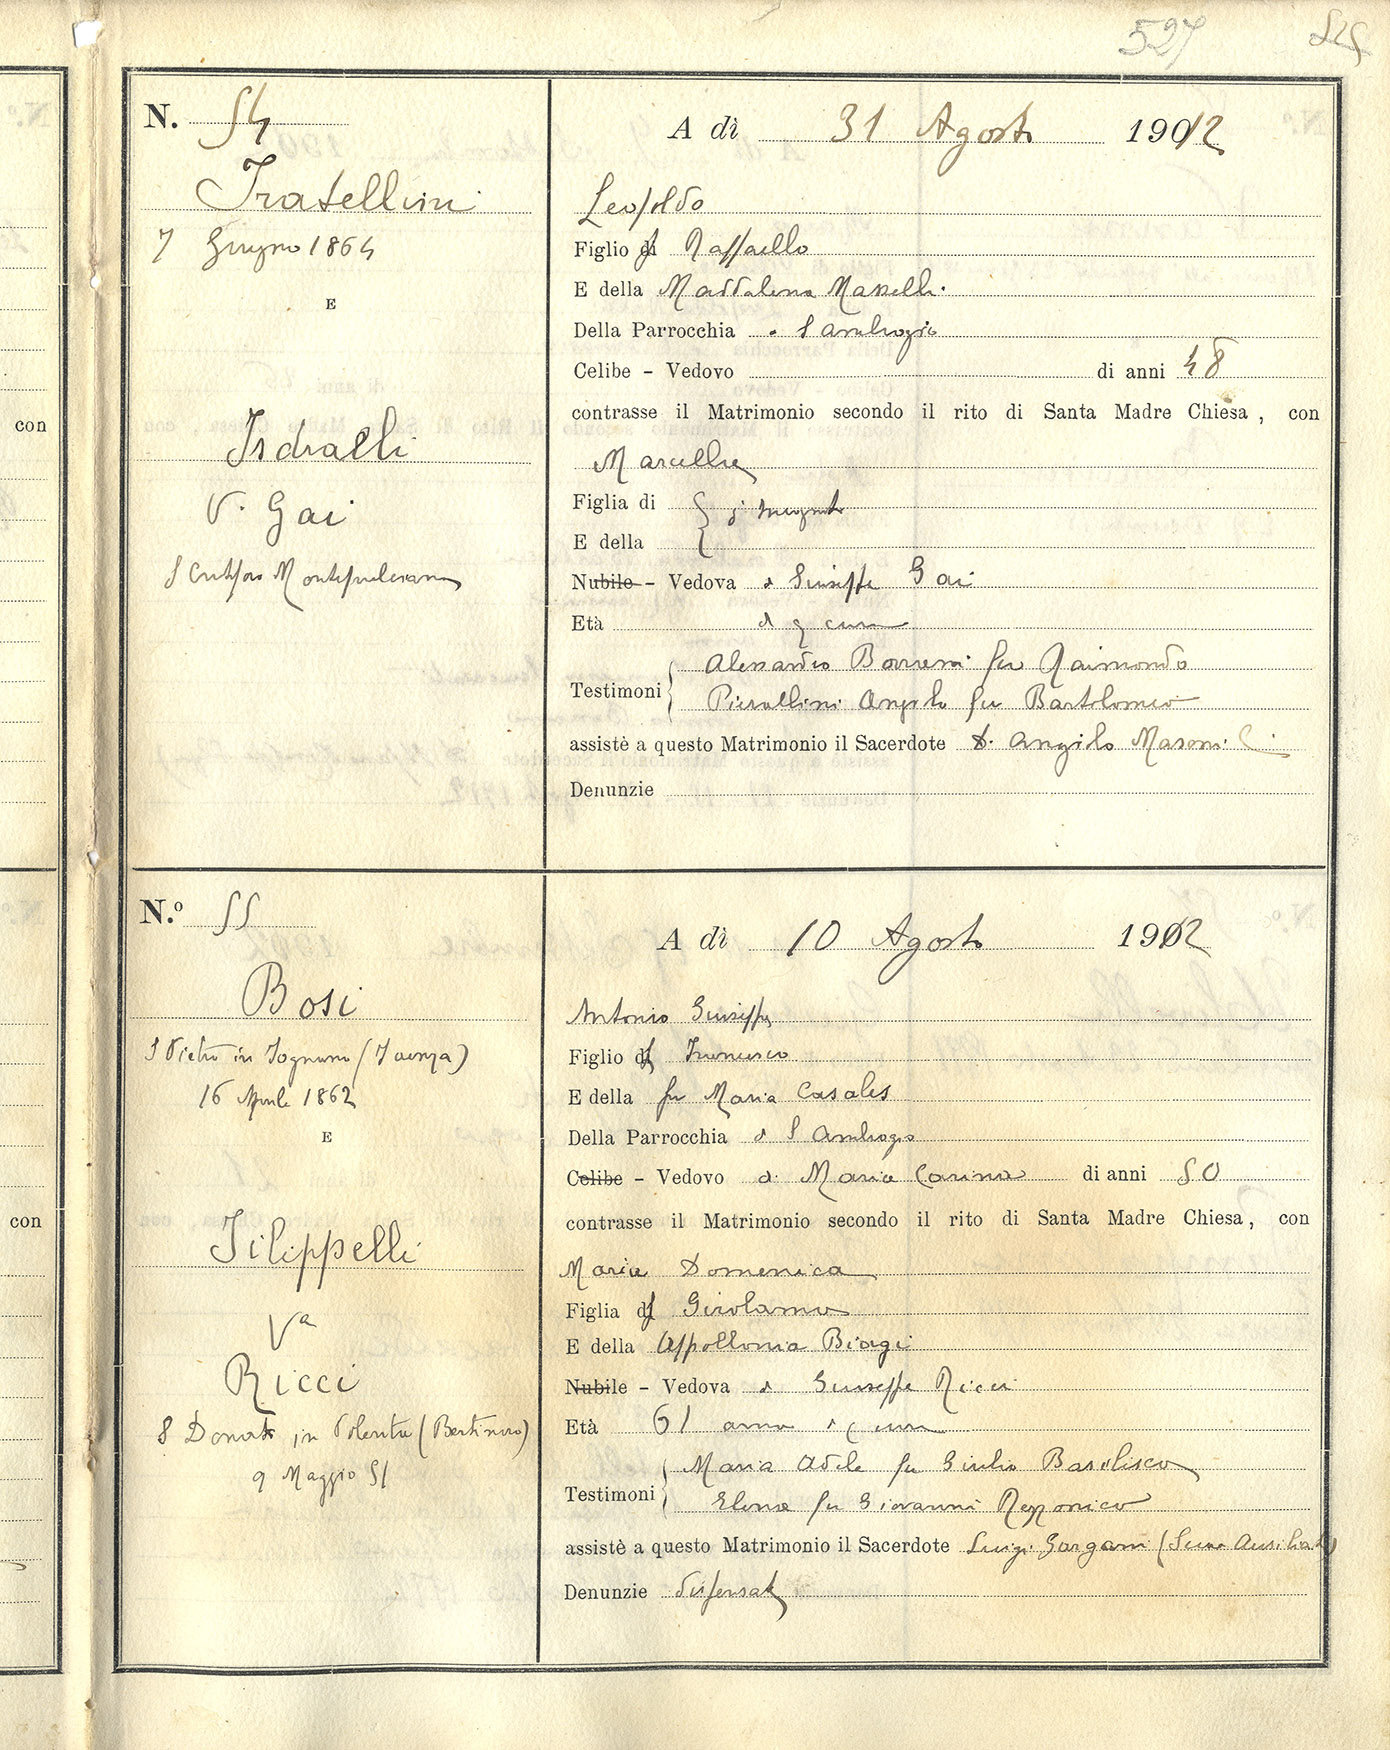 527
con
con
N. 54
A dì 31 Agosto 1912
Fratellini
7 Giugno 1864
E
Isdralli
V. Gai
Leopoldo
Figlio di Raffaello
E della Maddalena
Della Parrocchia S Ambrogio
Celibe - Vedovo di anni 48
contrasse il Matrimonio secondo il rito di Santa Madre Chiesa, con
Marcella
Figlia di
E della
Nubile - Vedova di Giuseppe Gai
Età
Testimoni Alessandro fu Raimondo
Pierallini Angelo fu Bartolomeo
assistè a questo Matrimonio il Sacerdote D. Angiolo Masoni
Denunzie
N.º 55
A dì 10 Agosto 1912
Bosi
S Pietro in (Faenza)
16 Aprile 1862
E
Filippelli
Va
Ricci
S Donato in Polenta (Bertinoro)
9 Maggio 51
Antonio Giuseppe
Figlio di Francesco
E della fu Maria Casales
Della Parrocchia di S Ambrogio
Celibe - Vedovo di Maria di anni 50
contrasse il Matrimonio secondo il rito di Santa Madre Chiesa, con
Maria Domenica
Figlia di Girolamo
E della Appollonia Biagi
Nubile - Vedova di Giuseppe Ricci
Età 61 anno
Testimoni Maria Adele fu Giulio
fu Giovanni Rezzonico
assistè a questo Matrimonio il Sacerdote Luigi Gargani
Denunzie dispensate